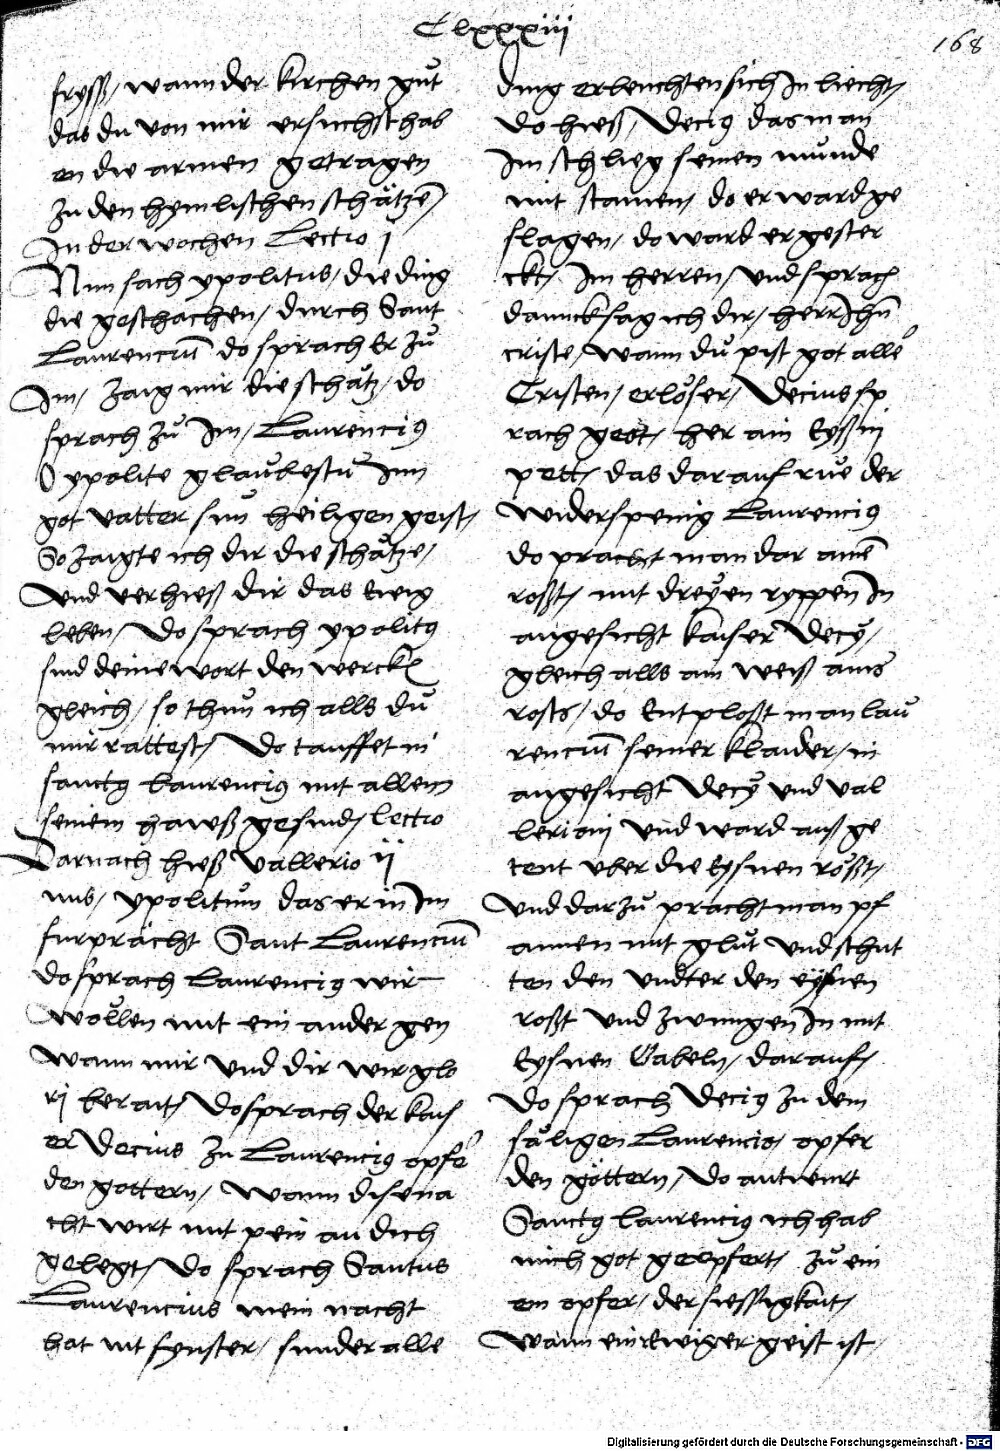 Clxxxiii
168
fryss/ wann der kirchen gůt
das du von mir ersuchst hab
en die armen getragen
zu den hymlischen schätzē/
In der wochen Lectio j
Nun sach ypolitus/ die ding
die geschachen/ durch Sant
Laurenciū do sprach Er zů
Im/ zaig mir die schätz/ do
sprach zů Im/ Laurencig
O ypolite glaubestu Inn
got vatter sun heiligen geist/
So zaigte ich dir die schätze/
vnd verhieß dir das Ewig
leben/ Do sprach ypolitg
sind deine wort den werckē
gleich/ so thun ich alls dů
mir rattest/ Do tauffet in
sanctg Laurencig mit allem
seinem hawß gesind/ lectio
Darnach hieß Vallerio ij
nus/ ypolitum das er in Im
furprächt Sant Laurenciū
do sprach Laurencig wir
wöllen mit ein ander gen
wann mir vnd dir wirt glo
rj berait/ Do sprach der kais
er Decius zu Laurencig opfer
den gottern/ Wann dise na
cht wirt mit pein an dich
gelegt/ Do sprach Santus
Laurencius mein nacht
hat nit fynster/ sunder alle
ding erleuchten sich In liecht/
Do hieß/ Decig das man
Im schlieg seinen munde
mit stainen/ do er ward ge
slagen/ do ward er gester
ckt/ Im herren/ vnd sprach
danncksag ich dir/ herr Ihū
criste/ wann du pist got aller
Cristen/ erlöser/ Decius sp
rach gest/ her ain Eyßin
pett/ das darauf rue der
widerspenig Laurencig
do pracht man dar ainē
roßt/ mit dreyen ryppen In
angesicht kaiser Decÿ/
gleich alls ain weiß ains
rosts/ do Entploßt man lau
renciū seiner klaider/ in
angesicht Decÿ vnd val
leriani vnd ward auß ge
tent vber die Eysnen roßt/
vnd darzů pracht man pf
annen mit glůt vnd schut
ten den vndter den eysnen
roßt vnd zwungen In mit
Eysnen Gabeln/ darauf/
Do sprach Decig zu dem
säligen Laurencio/ opfer
den göttern/ Do antwurt
Sanctg Laurencig ich hab
mich got geopfert/ zů ein
em opfer/ der siessigkait/
Wann ein Ewiger geist ist
Digitalisierung gefördert durch die Deutsche Forschungsgemeinschaft - DFG